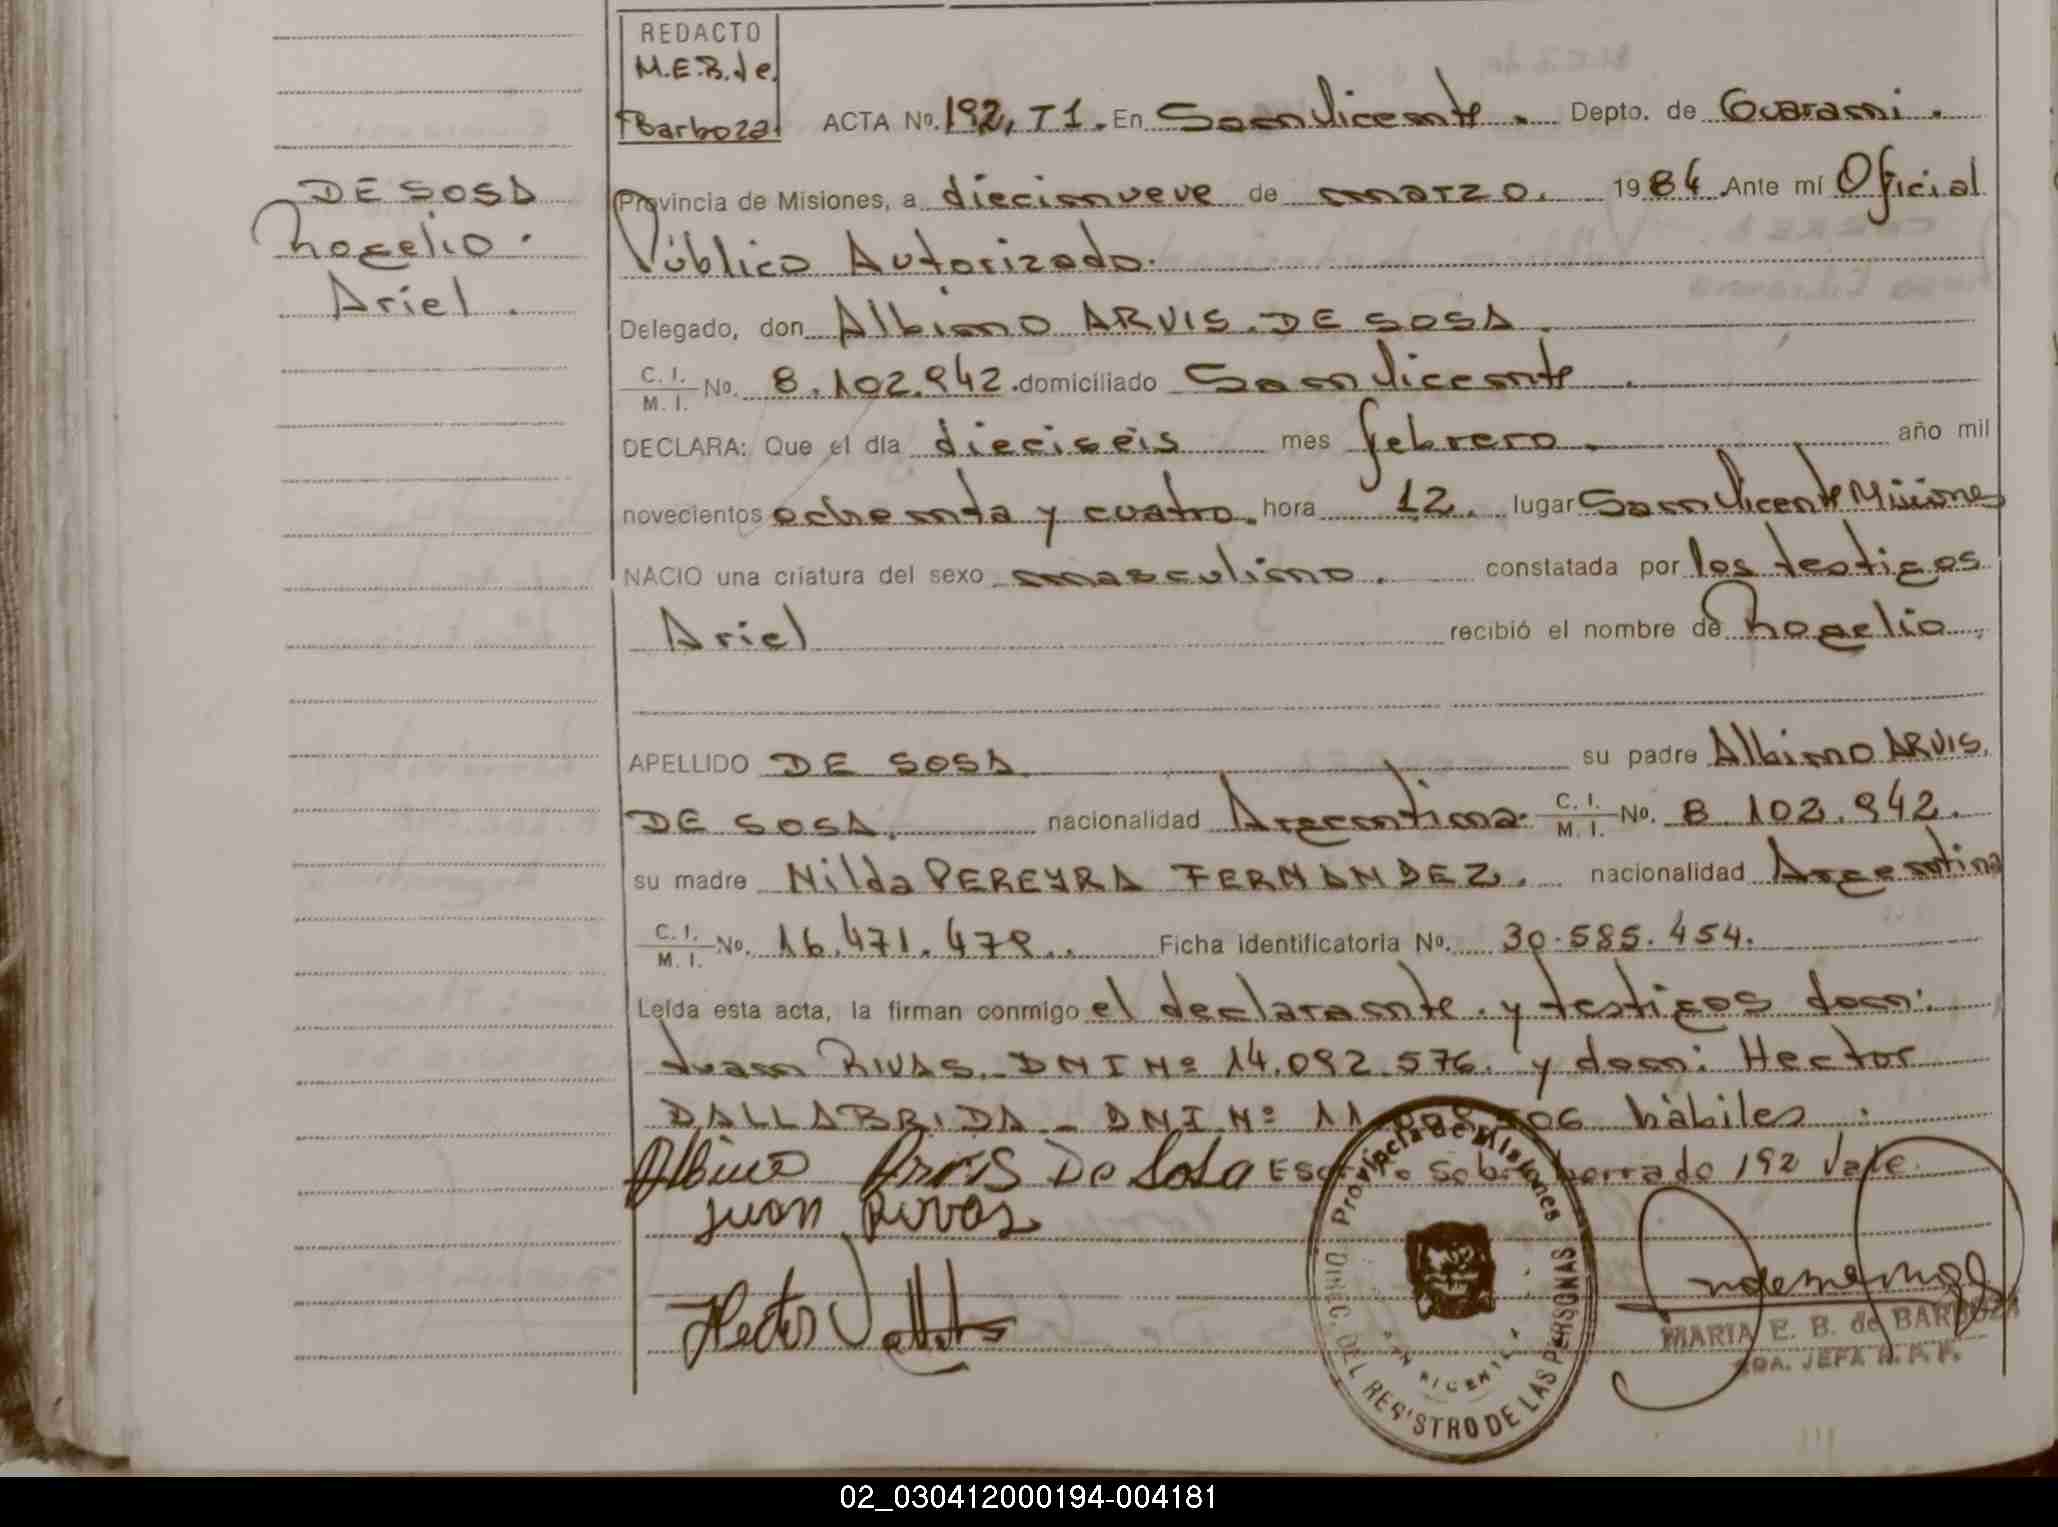 REDACTO
M.E.B. de
Barboza
ACTA No. 192, T1. En San Vicente. Depto. de Guarani.
DE SOSA
Rogelio.
Ariel.
Provincia de Misiones, a diecinueve de marzo. 1984. Ante mí Oficial
Público Autorizado.
Delegado, don Albino ARVIS. DE SOSA.
C. I.
M. I. No. 8.102.942. domiciliado San Vicente.
DECLARA: Que el día dieciseis mes febrero. año mil
novecientos ochenta y cuatro. hora 12. lugar San Vicente Misiones
NACIO una criatura del sexo masculino. constatada por los testigos
Ariel recibió el nombre de Rogelio
APELLIDO DE SOSA su padre Albino ARVIS.
DE SOSA. nacionalidad Argentina. C. I.
M. I. No. 8.102.942.
su madre Nilda PEREYRA FERNANDEZ. nacionalidad Argentina
C. I.
M. I. No. 16.471.479. Ficha identificatoria No. 30.585.454.
Leída esta acta, la firman conmigo el declarante. y testigos don:
Juan RIVAS. DNI Nº 14.092.576. y don: Hector
DALLABRIDA - DNI. Nº 11 506 hàbiles :
Albino Arvis De Sosa Escrito Sobre borrado 192 Vale.
Juan Rivas
Hector
Provincia de Misiones
DIREC. DEL REGISTRO DE LAS PERSONAS
SAN VICENTE
MARIA E. B. de BARBOZA
JEFA
02_030412000194-004181